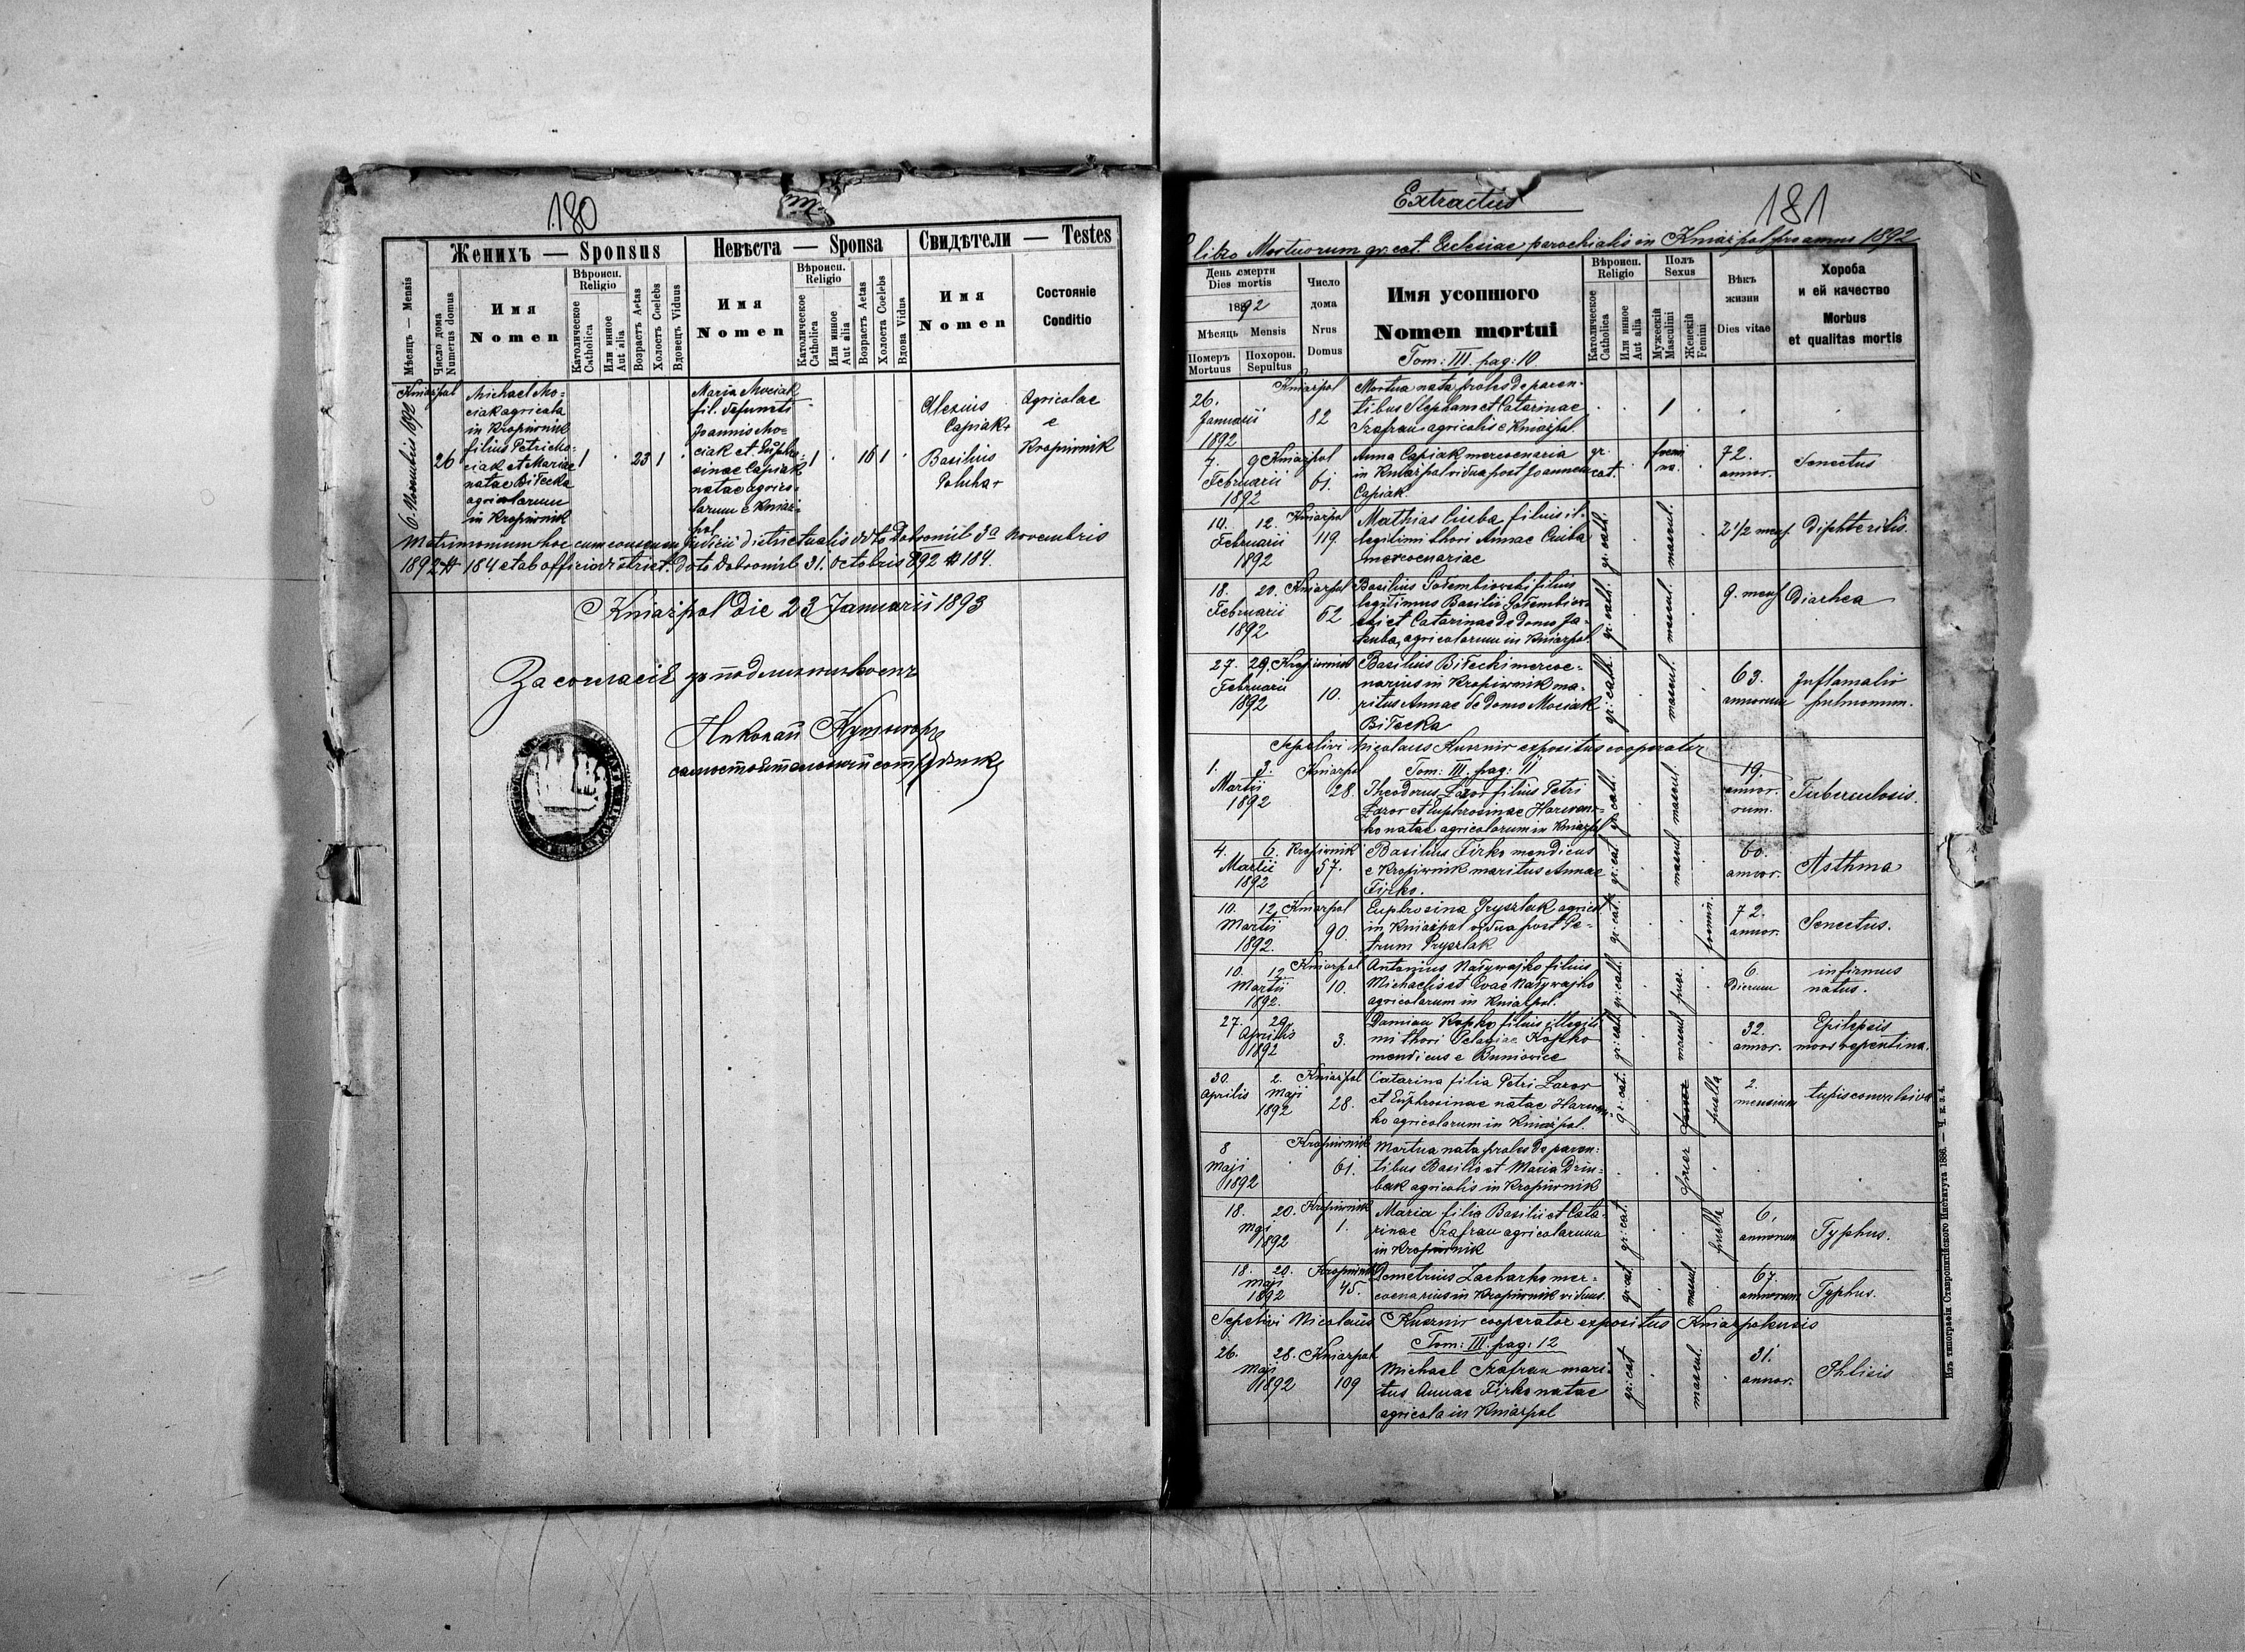 180
Женихъ — Sponsus
Невѣста — Sponsa
Свидѣтели — Testes
Мѣсяць — Mensis
Число дома
Numerus domus
Имя
Nomen
Вѣроисп.
Religio
Католическое
Catholica
Или инное
Aut alia
Возрастъ Aetas
Холостъ Coelebs
Вдовецъ Viduus
Имя
Nomen
Вѣроисп.
Religio
Католическое
Catholica
Или инное
Aut alia
Возрастъ Aetas
Холоста Coelebs
Вдова Vidua
Имя
Nomen
Состоянiе
Conditio
Kniażpol
6. Novembris 1892
26
Michael Mo=
ciak agricola
in Kropiwnik
filius Petri Mo=
ciak et Mariae
natae Biłecka
agricolarum
in Kropiwnik
1
23
1
Maria Mociak
fil. defuncti
Joannis Mo=
ciak et Euphro=
sinae Capiak
natae agrico=
larum e Kniaż=
pol
1
16
1
Alexius
Capiak +
Basilius
Agricolae
e
Kropiwnik
Matrimonium hoc cum consensu judicii districtualis ddto Dobromil 3a Novembris
1892 # 184 et ab officio district. ddto Dobromil 31. Octobris 892 # 184.
Kniażpol die 23 Januarii 1893
За согласіе
Николай
181
Extractus
libro Mortuorum gr. cat. Ecclesiae parochialis in Kniażpol pro anno 1892
День смерти
Dies mortis
1892
Мѣсяць Mensis
Померъ
Mortuus
Похорон.
Sepultus
Число
дома
Nrus
Domus
Имя усопшого
Nomen mortui
Tom: III. pag: 10
Вѣроисп.
Religio
Католическое
Catholica
Или инное
Aut alia
Полъ
Sexus
Мужескій
Masculini
Женскій
Femini
Вѣкъ
жизни
Dies vitae
Хороба
и ей качество
Morbus
et qualitas mortis
26.
Januarii
1892
Kniażpol
82
Mortua nata proles de paren=
tibus Stephano et Catarinae
Szafran agricolis e Kniażpol.
1
7. 9 Kniażpol
Februarii
1892
61.
Anna Capiak mercenaria
in Kniażpol vidua post Joannem
Capiak.
gr.
cat.
72.
annor.
Senectus
10. 12. Kniażpol
Februarii
1892
119.
Mathias Ciuba filius il=
legitimi thori Annae Ciuba
mercenariae
gr: cath.
mascul.
2 1/2 mens.
Diphteritis.
18. 20. Kniażpol
Februarii
1892
62
Basilius Gołembiowski filius
legitimus Basilii Gołembiow=
ski et Catarinae de domo Ja=
kuba, agricolarum in Kniażpol.
gr: cath.
mascul.
9. mens
Diarhea
27. 29. Kropiwnik
Februarii
1892
10.
Basilius Biłecki merce=
narius in Kropiwnik ma=
ritus Annae de domo Mociak
Biłecka
gr: cath.
mascul.
63.
annorum
Inflamatio
pulmonum.
Sepelivi Nicolaus Kusznir expositus cooperator
Tom: III. pag: 11
1. 3. Kniażpol
Martii
1892
28.
Theodorus Lazor filius Petri
Lazor et Euphrosinae Harwon=
ko natae agricolarum in Kniażpol
gr: cath.
mascul.
19.
annor=
rum.
Tuberculosis.
4. 6. Kropiwnik
Martii
1892
57.
Basilius Firko mendicus
e Kropiwnik maritus Annae
Firko.
gr: cat
mascul
60.
annor.
Asthma
10. 12 Kniażpol
Martii
1892.
90.
Euphrosina Pryszlak agricol.
in Kniażpol vidua post Pe=
trum Pryszlak
gr: cat.
72.
annor.
Senectus.
10. 12 Kniażpol
Martii
1892.
10.
Antonius Nalywajko filius
Michaelis et Evae Nalywajko
agricolarum in Kniażpol.
gr: cath.
puer.
6.
dierum
infirmus
natus.
27. 29.
Aprilis
1892
3.
Damian Kopko filius illegiti=
mi thori Pelagiae Kopko
mendicus e Buniowice
gr: cath.
mascul
32.
annor.
Epilepsis
mors repentina.
30. 2. Kniażpol
Aprilis Maji
1892
28.
Catarina filia Petri Lazor
et Euphrosinae natae Harwon=
ko agricolarum in Kniażpol.
gr: cat.
puella
2.
mensium
tussis convulsiva
8 Kropiwnik
Maji
1892
61.
Mortua nata proles de paren=
tibus Basilio et Maria Drin=
bak agricolis in Kropiwnik
puer
18. 20. Kropiwnik
Maji
1892
1.
Maria filia Basilii et Cata=
rinae Szafran agricolarum
in Kropiwnik
gr: cat.
puella
6.
annorum
Typhus.
18. 20. Kropiwnik
Maji
1892
45.
Demetrius Zacharko mer=
cenarius in Kropiwnik viduus.
gr: cat
mascul.
67.
annorum
Typhus.
Sepelivi Nicolaus Kusznir cooperator expositus Kniażpolensis
Tom: III. pag: 12
26. 28. Kniażpol
Maji
1892
109
Michael Szafran mari=
tus Annae Firko natae
agricola in Kniażpol
gr: cat
mascul.
31.
annor.
Phtisis
Изъ типографіи Ставропигійского Института 1886. — Ч. к. з. 4.